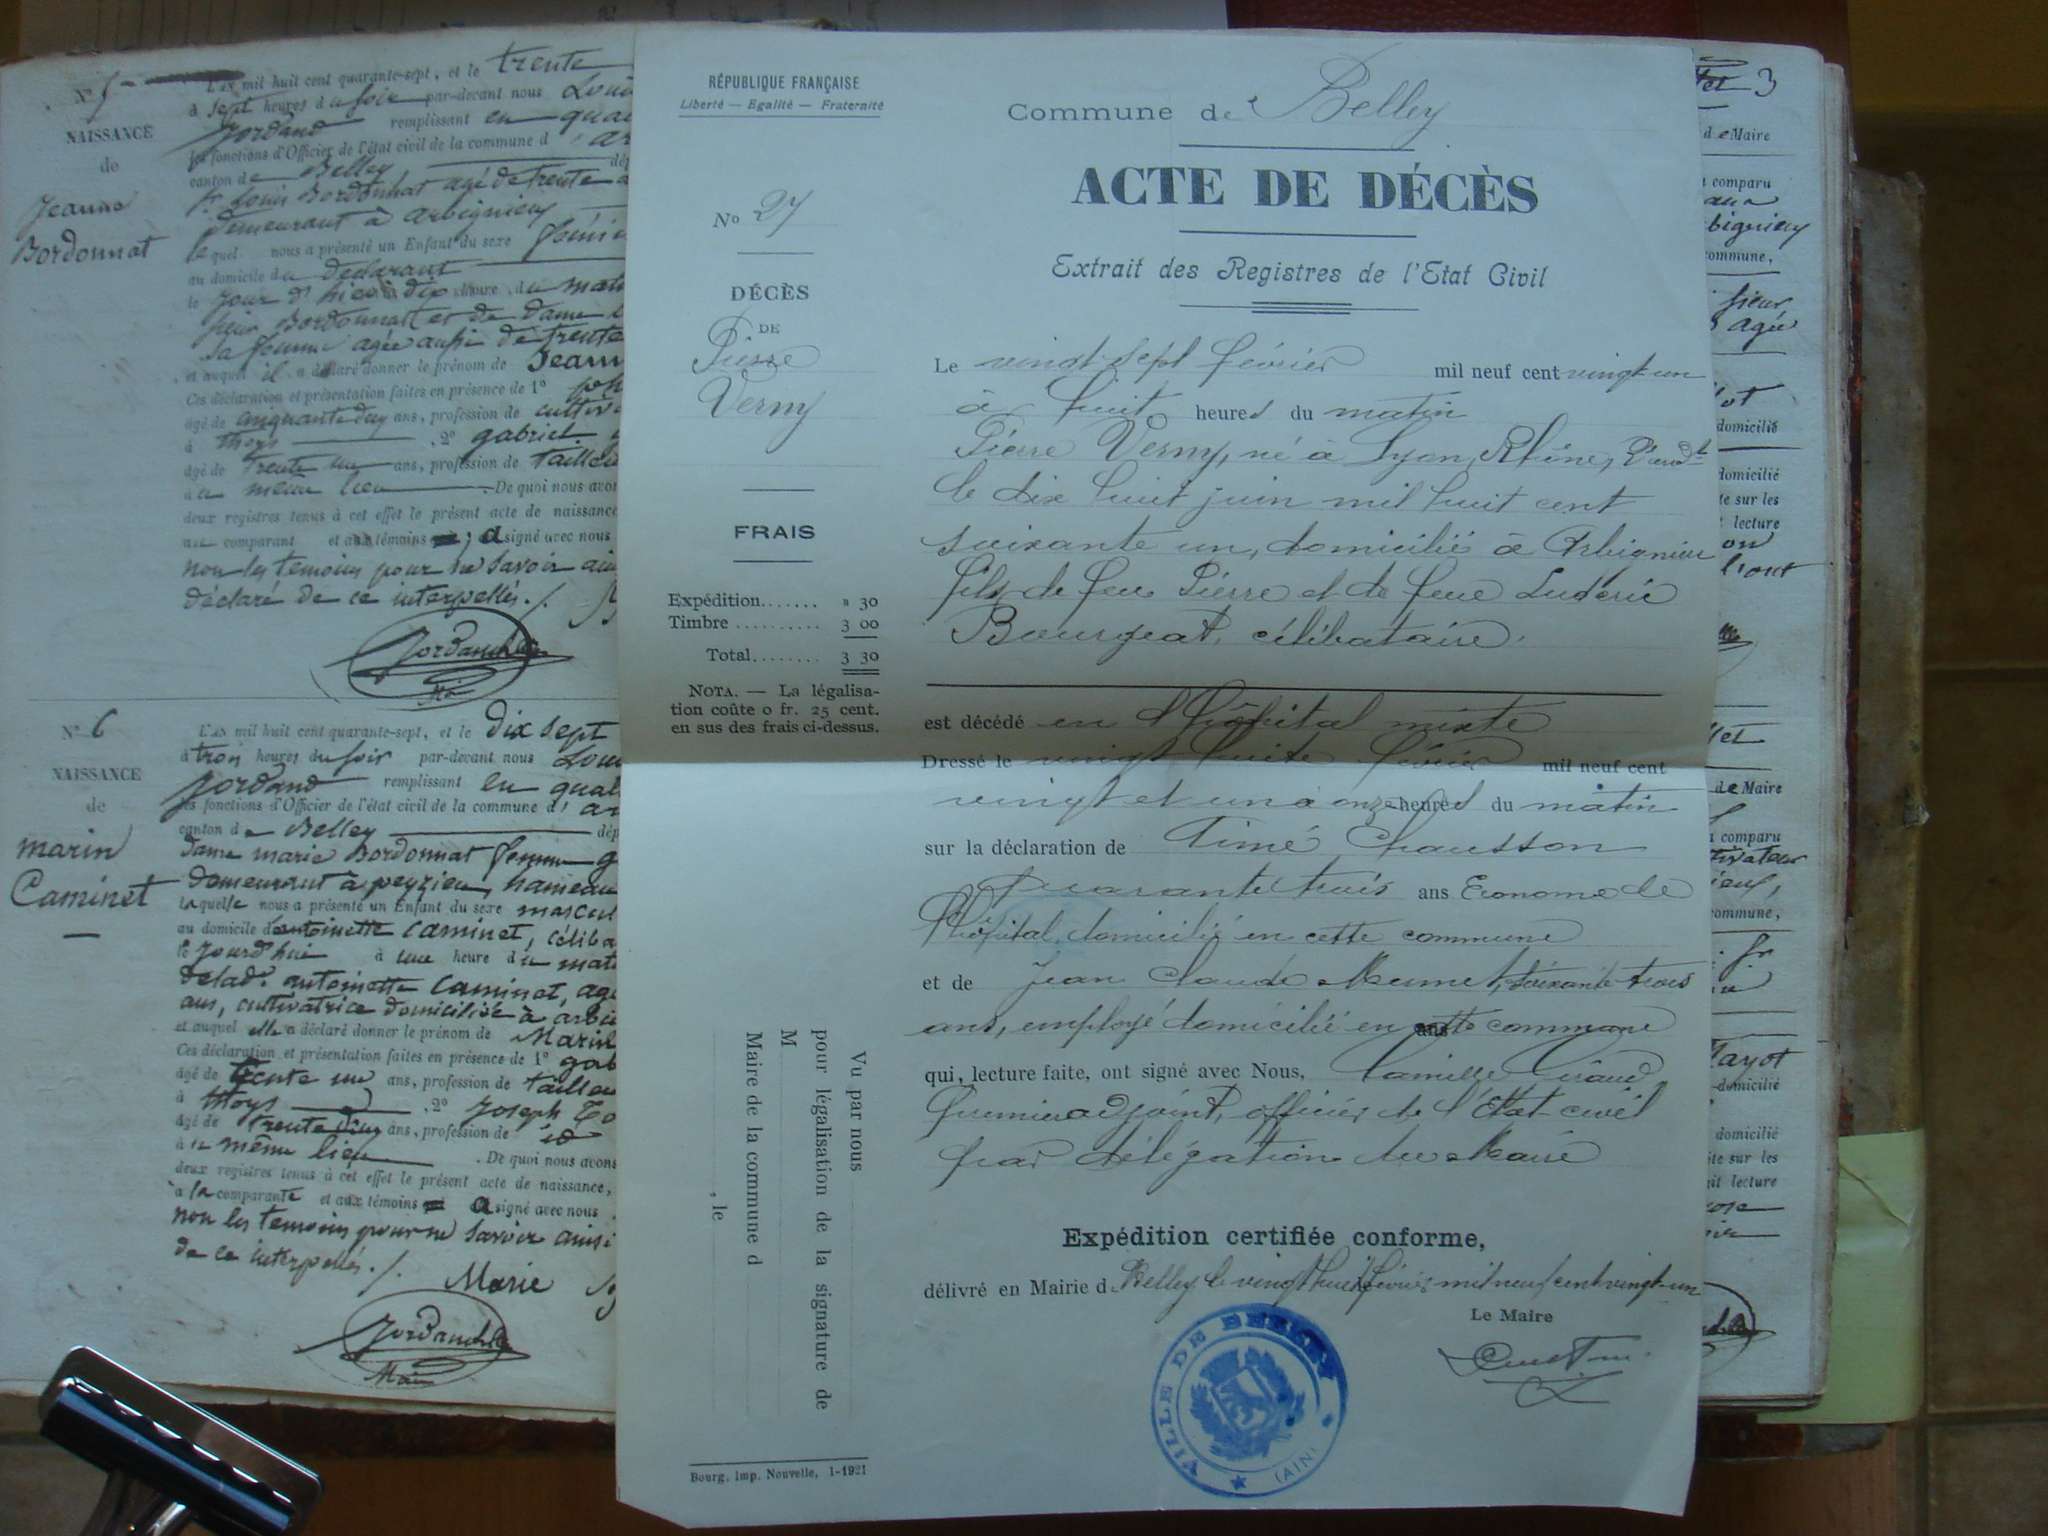 N° 5
NAISSANCE
de
Jeanne
Bordonnat
L'AN mil huit cent quarante-sept, et le trente
à sept heures du soir par-devant nous Loui
Jordand remplissant en qua
les fonctions d'Officier de l'état civil de la commune d' ar
canton de Belley dép
sr Louis Bordonnat agé de trente
demeurant à arbignieu
lequel nous a présenté un Enfant du sexe fémi
au domicile du déclarant
le jour d'hier à dix heure du mati
sieur Bordonnat et de dame
sa femme agée aussi de trente
et auquel il a déclaré donner le prénom de Jeann
Ces déclaration et présentation faites en présence de 1°
âgé de cinquante deux ans, profession de cultiv
à thoys , 2° gabriel
âgé de trente un ans, profession de tailleu
à u même lieu .De quoi nous avon
deux registres tenus à cet effet le présent acte de naissance
au comparant et aux témoins ; a signé avec nous
non les temoins pour ne savoir ain
déclaré de ce interpellés ./.
N° 6
NAISSANCE
de
marin
Caminet
L'AN mil huit cent quarante-sept, et le dix sept
à trois heures du soir par-devant nous Loui
Jordand remplissant en qual
les fonctions d'Officier de l'état civil de la commune d' ar
canton de Belley dép
dame marie Bordonnat femme g
demeurant à peyzieu, hameau
laquelle nous a présenté un Enfant du sexe mascul
au domicile d'antoinette Caminet, céliba
le jourd'hui à une heure du mat
de lad. antoinette Caminet, agé
ans, cultivatrice domiciliée à arbi
et auquel elle a déclaré donner le prénom de Marin
Ces déclaration et présentation faites en présence de 1° gab
âgé de trente un ans, profession de tailleu
à thoys , 2° Joseph
âgé de trente ans, profession de id
à u même lieu .De quoi nous avons
deux registres tenus à cet effet le présent acte de naissance,
à la comparante et aux témoins a signé avec nous
non les temoins pour ne savoir ainsi
de ce interpellés ./. Marie
RÉPUBLIQUE FRANÇAISE
Liberté — Egalité — Fraternité
N° 27
DÉCÈS
DE
Pierre
Verny
FRAIS
Expédition....... » 30
Timbre .......... 3 00
Total........ 3 30
NOTA. — La légalisa-
tion coûte 0 fr. 25 cent.
en sus des frais ci-dessus.
Vu par nous
pour légalisation de la signature de
M
Maire de la commune d
, le
Bourg, Imp. Nouvelle, 1-1921
Commune de Belley
ACTE DE DÉCÈS
Extrait des Registres de l'Etat Civil
Le vingt sept février mil neuf cent vingt-un
à huit heures du matin
Pierre Verny, né à Lyon, Rhône,
le dix huit juin mil huit cent
soixante un, domicilié à Arbignieu
fils de feu Pierre et de feue
Bourgeat, célibataire.
est décédé en l'hôpital mixte
Dressé le vingt huit février mil neuf cent
vingt et un à onze heures du matin
sur la déclaration de Aimé Chausson
quarante trois ans Econome de
l'hôpital domicilié en cette commune
et de Jean Claude soixante trois
ans, employé domicilié en cette commune
qui, lecture faite, ont signé avec Nous, Camille Giraud
premier adjoint, officier de l'Etat civil
par délégation du Maire
Expédition certifiée conforme,
délivré en Mairie d Belley le vingt huit février mil neuf cent vingt-un
Le Maire
VILLE DE BELLEY
(AIN)
3
de Maire
comparu
bignieu
commune,
sieur
agée
domicilié
domicilié
te sur les
lecture
de Maire
comparu
tivateur
commune,
Tayot
domicilié
domicilié
te sur les
it lecture